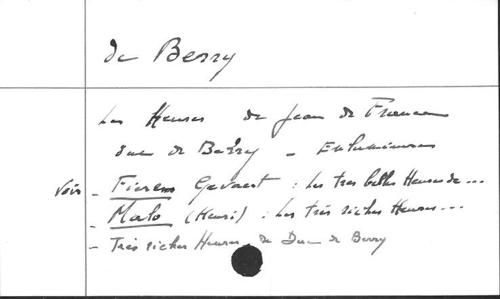 de Berry
Les Heures de Jean de France
duc de Berry - Enlumineures
Voir - Fierens Gevaert : Les très belles Heures de...
- Malo (Henri) : Les très riches Heures...
- Très riches Heures de Duc de Berry